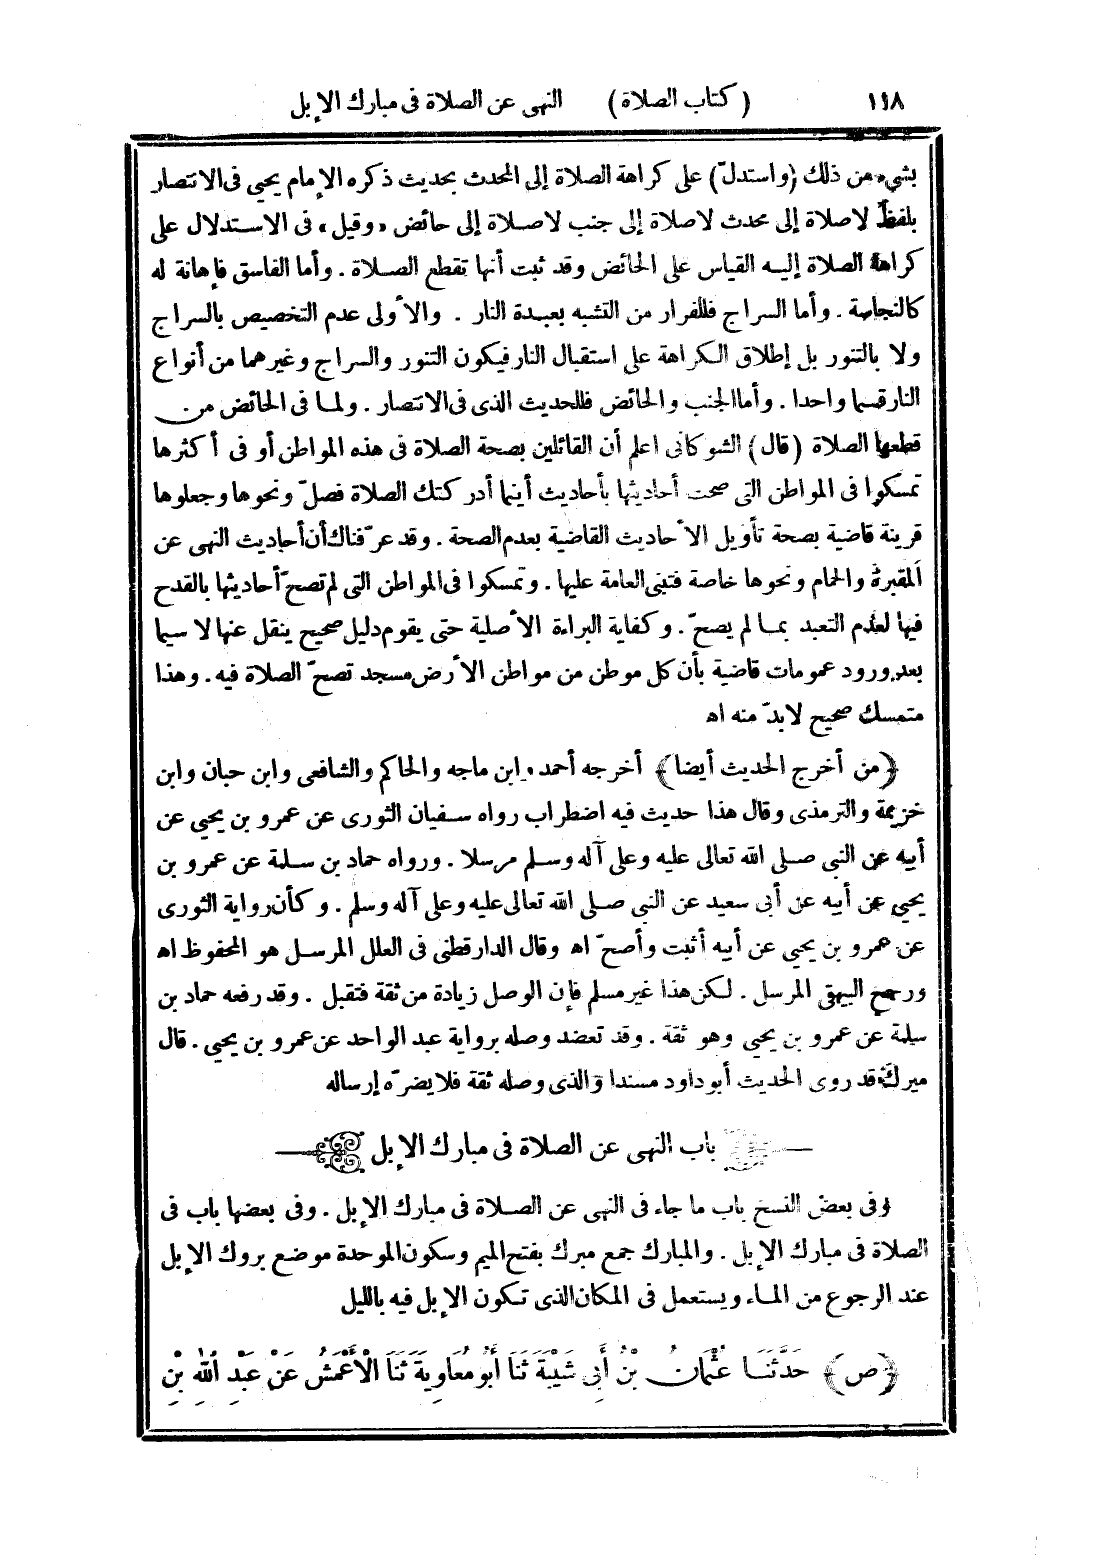 ١١٨ (كتاب الصلاة) النهى عن الصلاة فى مبارك الإبل
بشىء من ذلك (واستدلّ) على كراهة الصلاة إلى المحدث بحديث ذكره الإمام يحيى فى الانتصار
بلفظ لاصلاة إلى محدث لاصلاة إلى جنب لاصلاة إلى حائض «وقيل» فى الاستدلال على
كراهة الصلاة إليه القياس على الحائض وقد ثبت أنها تقطع الصلاة . وأما الفاسق فإهانة له
كالنجاسة . وأما السراج فللفرار من التشبه بعبدة النار . والأولى عدم التخصيص بالسراج
ولا بالتنور بل إطلاق الكراهة على استقبال النار فيكون التنور والسراج وغيرهما من أنواع
النار قسما واحدا . وأما الجنب والحائض فللحديث الذى فى الانتصار . ولما فى الحائض من
قطعها الصلاة (قال) الشوكانى اعلم أن القائلين بصحة الصلاة فى هذه المواطن أو فى أكثرها
تمسكوا فى المواطن التى صحت أحاديثها بأحاديث أينما أدركتك الصلاة فصلّ ونحوها وجعلوها
قرينة قاضية بصحة تأويل الأحاديث القاضية بعدم الصحة . وقد عرّفناك أن أحاديث النهى عن
المقبرة والحمام ونحوها خاصة فتبنى العامة عليها . وتمسكوا فى المواطن التى لم تصحّ أحاديثها بالقدح
فيها لعدم التعبد بما لم يصحّ . وكفاية البراءة الأصلية حتى يقوم دليل صحيح ينقل عنها لا سيما
بعد ورود عمومات قاضية بأن كل موطن من مواطن الأرض مسجد تصحّ الصلاة فيه . وهذا
متمسك صحيح لابدّ منه اه
﴿من أخرج الحديث أيضا﴾ أخرجه أحمد وابن ماجه والحاكم والشافعى وابن حبان وابن
خزيمة والترمذى وقال هذا حديث فيه اضطراب رواه سفيان الثورى عن عمرو بن يحيى عن
أبيه عن النبى صلى الله تعالى عليه وعلى آله وسلم مرسلا . ورواه حماد بن سلمة عن عمرو بن
يحيى عن أبيه عن أبى سعيد عن النبى صلى الله تعالى عليه وعلى آله وسلم . وكأن رواية الثورى
عن عمرو بن يحيى عن أبيه أثبت وأصحّ اه وقال الدارقطنى فى العلل المرسل هو المحفوظ اه
ورجح البيهقى المرسل . لكن هذا غير مسلم فإن الوصل زيادة من ثقة فتقبل . وقد رفعه حماد بن
سلمة عن عمرو بن يحيى وهو ثقة . وقد تعضد وصله برواية عبد الواحد عن عمرو بن يحيى . قال
ميرك قد روى الحديث أبو داود مسندا والذى وصله ثقة فلا يضرّه إرساله
باب النهى عن الصلاة فى مبارك الإبل
وفى بعض النسخ باب ما جاء فى النهى عن الصلاة فى مبارك الإبل . وفى بعضها باب فى
الصلاة فى مبارك الإبل . والمبارك جمع مبرك بفتح الميم وسكون الموحدة موضع بروك الإبل
عند الرجوع من الماء ويستعمل فى المكان الذى تكون الإبل فيه بالليل
﴿ص﴾ حَدَّثَنَا عُثْمَانُ بْنُ أَبِى شَيْبَةَ ثَنَا أَبُو مُعَاوِيَةَ ثَنَا الْأَعْمَشُ عَنْ عَبْدِ اللهِ بْنِ